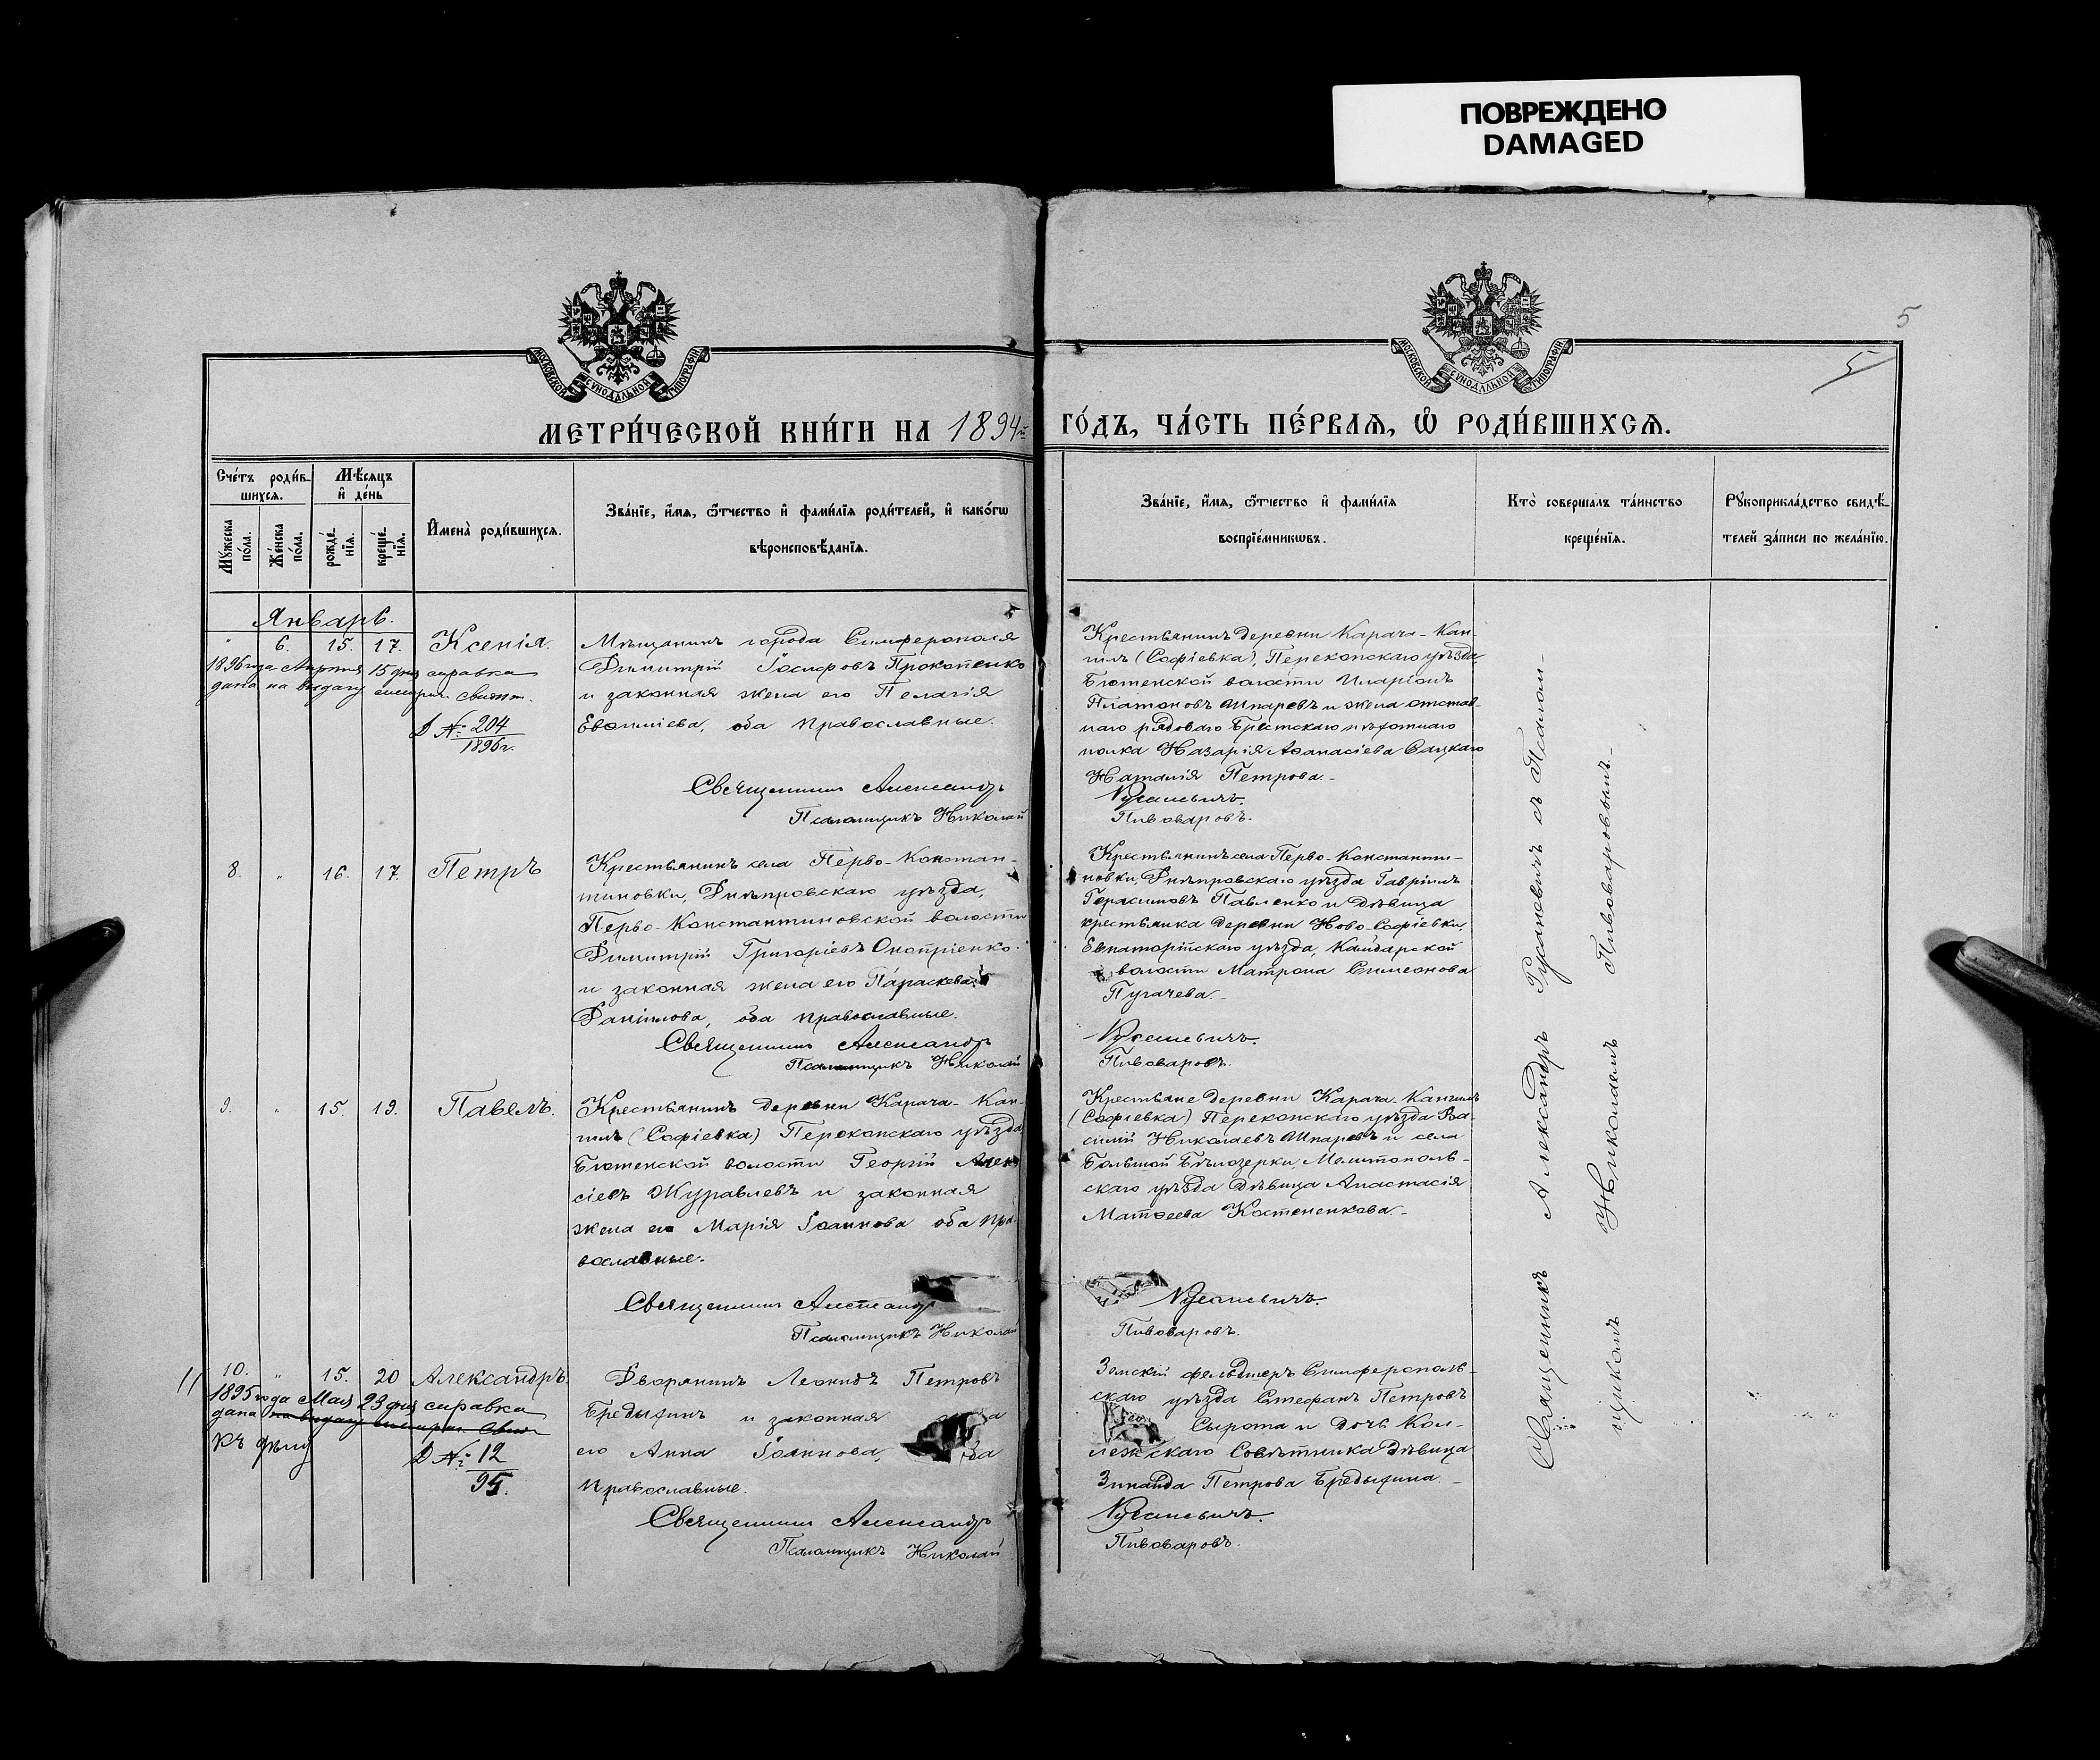 ПОВРЕЖДЕНО
DAMAGED
5
5
МОСКОВСКОЙ СУНОДАЛЬНОЙ ТИПОГРАФІИ
МОСКОВСКОЙ СУНОДАЛЬНОЙ ТИПОГРАФІИ
МЕТРИ́ЧЕСКОЙ КНИ́ГИ НА 1894й ГО́ДЪ, ЧА́СТЬ ПЕ́РВАѦ, Ѽ РОДИ́ВШИХСѦ.
Сче́тъ роди́в-
шихсѧ.
Мѣ́сѧцъ
и҆ де́нь
Мꙋ́жеска
по́ла.
Же́нска
по́ла.
рожде́-
нїѧ.
креще́-
нїѧ.
И҆мена̀ роди́вшихсѧ.
Зва́нїе, и҆́мѧ, ѻ҆́тчество и҆ фами́лїѧ роди́телей, и҆ како́гѡ
вѣроисповѣ́данїѧ.
Зва́нїе, и҆́мѧ, ѻ҆́тчество и҆ фами́лїѧ
воспрїе́мникѡвъ.
Кто̀ соверша́лъ та́инство
креще́нїѧ.
Рꙋкоприкла́дство свидѣ́-
телей за́писи по жела́нїю.
Январь.
" 6. 15. 17. Ксенія.
1896 года Апрѣля 15 дня справка
дана на выдачу метрич. свидѣт.
Д №: 204
1896 г.
Мѣщанинъ города Симферополя
Димитрій Іосифовъ Прокопенко
и законная жена его Пелагія
Евѳиміева, оба православные.
Священникъ Александръ
Псаломщикъ Николай
Крестьянинъ деревни Карача-Кан-
гилъ (Софіевка), Перекопскаго уѣзда,
Бютенской волости Иларіонъ
Платоновъ Шпаревъ и жена отстав-
наго рядоваго Брестскаго пѣхотнаго
полка Назарія Аѳанасіева Сацкаго
Наталія Петрова.-
Русаневичъ.
Пивоваровъ.
8. " 16. 17. Петръ
Крестьянинъ села Перво-Констан-
тиновки, Днѣпровскаго уѣзда,
Перво-Константиновской волости
Димитрій Григоріевъ Онопріенко
и законная жена его Параскева
Даніилова, оба православные.
Священникъ Александръ
Псаломщикъ Николай
Крестьянинъ села Перво-Константи-
новки, Днѣпровскаго уѣзда Гавріилъ
Герасимовъ Павленко и дѣвица
крестьянка деревни Ново-Софіевки,
Евпаторійскаго уѣзда, Камбарской
волости Матрона Симеонова
Пугачева.-
Русаневичъ.
Пивоваровъ.
9. " 15. 19. Павелъ.
Крестьянинъ деревни Карача-Кан-
гилъ (Софіевка) Перекопскаго уѣзда
Бютенской волости Георгій Алек-
сіевъ Журавлевъ и законная
жена его Марія Іоаннова оба пра-
вославные.
Священникъ Александръ
Псаломщикъ Николай
Крестьяне деревни Карача-Кангилъ
(Софіевка) Перекопскаго уѣзда Ва-
силій Николаевъ Шпаревъ и села
Большой Бѣлозерки, Мелитополь-
скаго уѣзда дѣвица Анастасія
Матѳеева Костененкова.-
Русаневичъ.
Пивоваровъ.
11
10. " 15. 20 Александръ.
1895 года Мая 23 дня справка
дана на выдачу метрич. свид.
къ дѣлу
Д №: 12
95.
Дворянинъ Леонидъ Петровъ
Бредихинъ и законная
его Анна Іоаннова,
православные.
Священникъ Александръ
Псаломщикъ Николай
Земскій фельдшеръ Симферополь-
скаго уѣзда Стефанъ Петровъ
Сырота и дочь Кол-
лежскаго Совѣтника дѣвица
Зинаида Петрова Бредихина.-
Русаневичъ.
Пивоваровъ.
Священникъ Александръ Русаневичъ съ Псалом-
щикомъ Николаемъ Пивоваровымъ.-